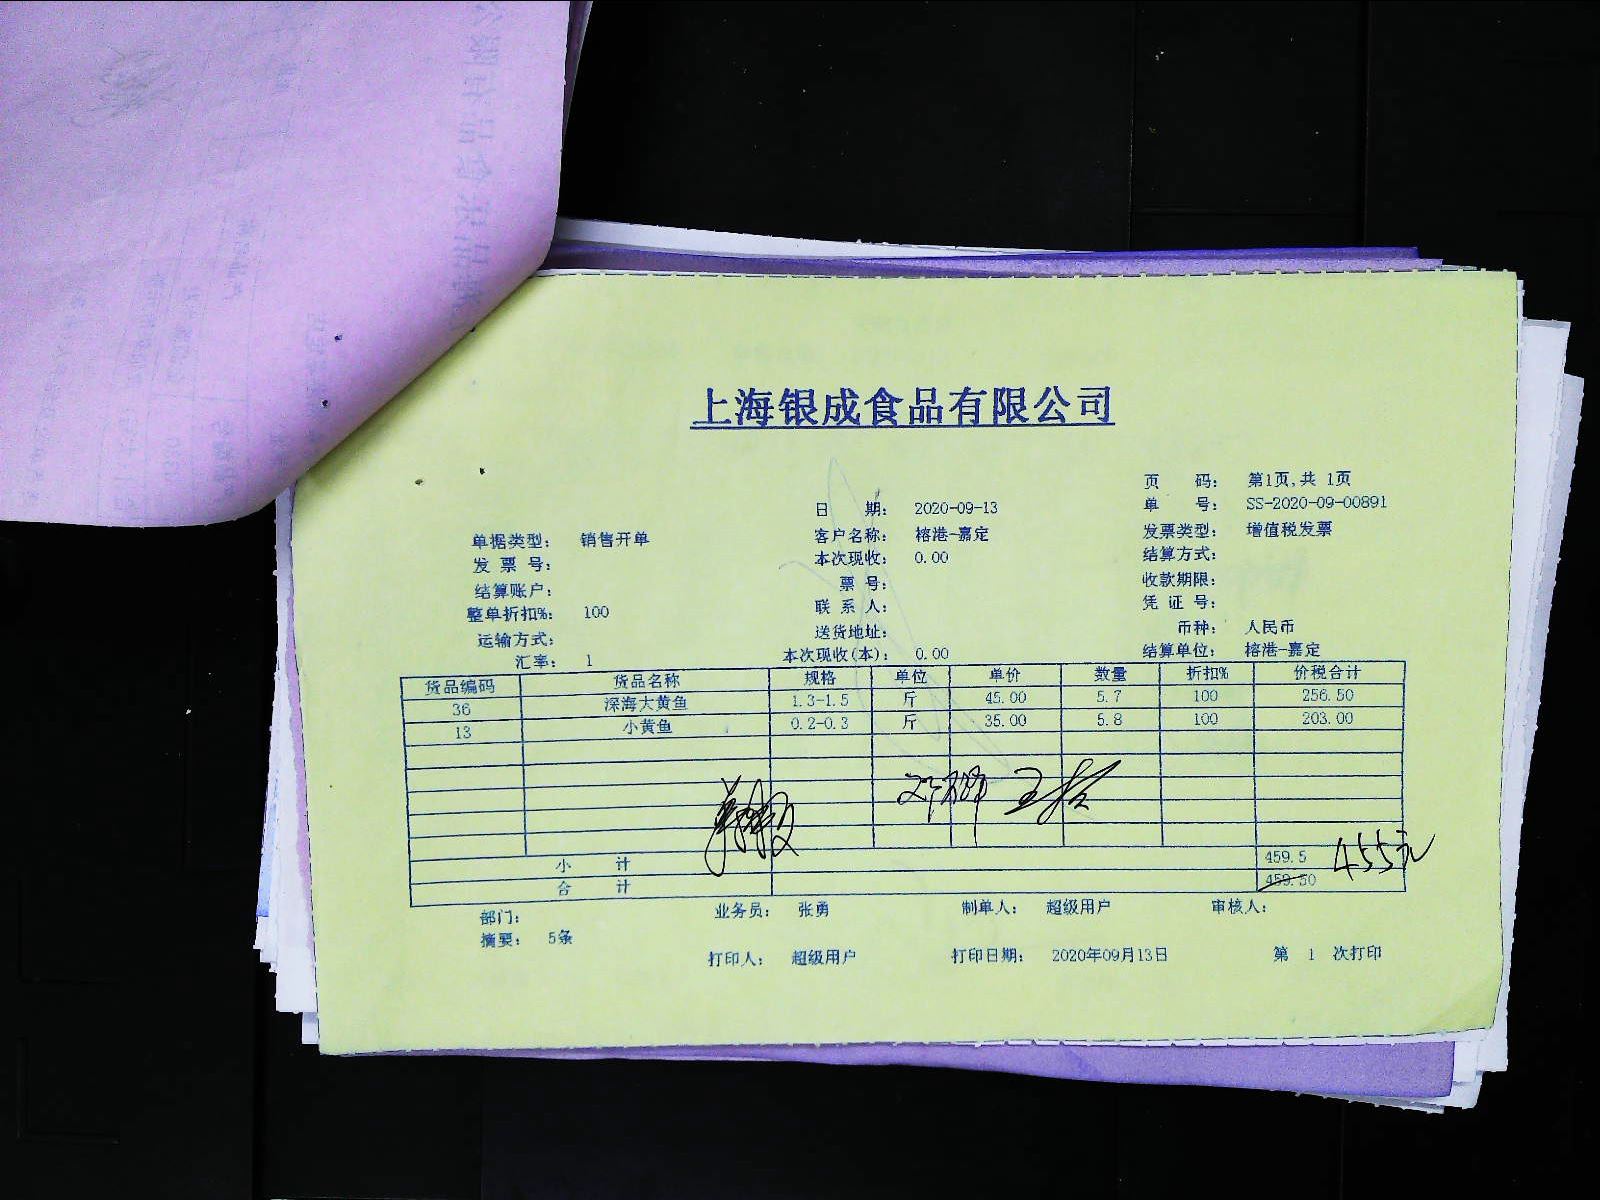 上海银成食品有限公司
页 码： 第1页,共 1页
日 期： 2020-09-13 单 号： SS-2020-09-00891
单据类型： 销售开单 客户名称： 榕港-嘉定 发票类型： 增值税发票
发 票 号： 本次现收： 0.00 结算方式：
结算账户： 票 号： 收款期限：
整单折扣%： 100 联 系 人： 凭 证 号：
运输方式： 送货地址： 币种： 人民币
汇率： 1 本次现收(本)： 0.00 结算单位： 榕港-嘉定
货品编码 货品名称 规格 单位 单价 数量 折扣% 价税合计
36 深海大黄鱼 1.3-1.5 斤 45.00 5.7 100 256.50
13 小黄鱼 0.2-0.3 斤 35.00 5.8 100 203.00
小 计 459.5 455元
合 计 459.50
部门： 业务员： 张勇 制单人： 超级用户 审核人：
摘要： 5条
打印人： 超级用户 打印日期： 2020年09月13日 第 1 次打印